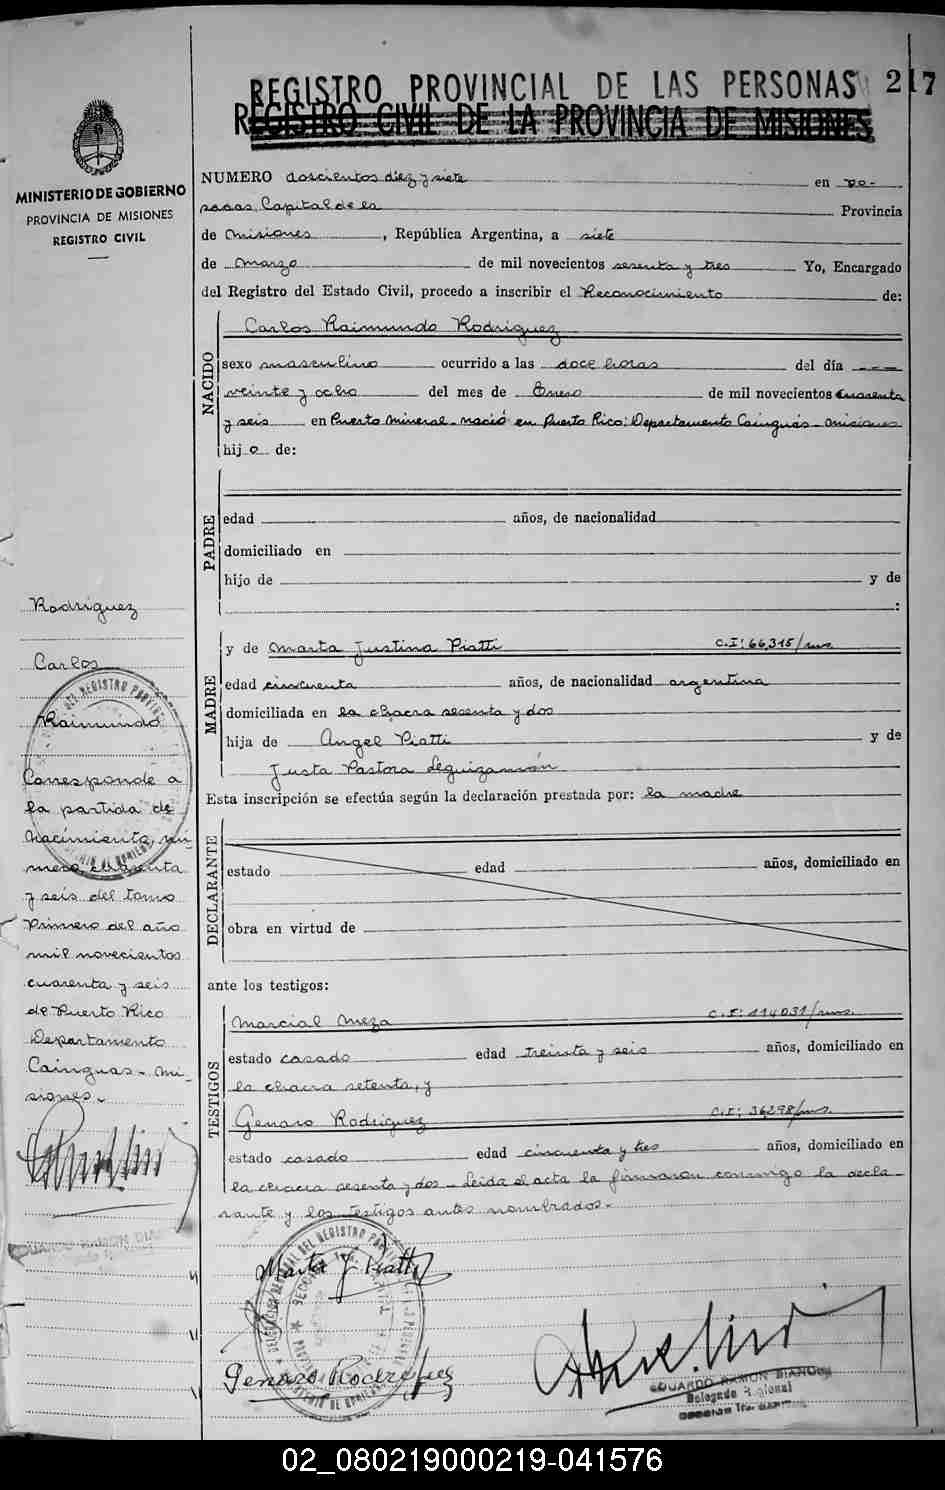 REGISTRO PROVINCIAL DE LAS PERSONAS 217
REGISTRO CIVIL DE LA PROVINCIA DE MISIONES
MINISTERIO DE GOBIERNO
PROVINCIA DE MISIONES
REGISTRO CIVIL
NUMERO doscientos diez y siete en Po-
sadas, Capital de la Provincia
de Misiones, República Argentina, a siete
de Marzo de mil novecientos sesenta y tres Yo, Encargado
del Registro del Estado Civil, procedo a inscribir el Reconocimiento de:
NACIDO
Carlos Raimundo Rodriguez
sexo masculino ocurrido a las doce horas del día
veinte y ocho del mes de Enero de mil novecientos cuarenta
y seis en Puerto Mineral - nació en Puerto Rico: Departamento Cainguás - Misiones
hijo de:
PADRE
edad años, de nacionalidad
domiciliado en
hijo de y de
:
MADRE
y de Marta Justina Piatti C.I: 66,315/mns.
edad cincuenta años, de nacionalidad argentina
domiciliada en la chacra sesenta y dos
hija de Angel Piatti y de
Justa Pastora Leguizamón
Esta inscripción se efectúa según la declaración prestada por: la madre
DECLARANTE
estado edad años, domiciliado en
obra en virtud de
ante los testigos:
TESTIGOS
Marcial Meza C.I: 114031/mns.
estado casado edad treinta y seis años, domiciliado en
la chacra setenta, y
Genaro Rodriguez C.I: 36298/mns.
estado casado edad cincuenta y tres años, domiciliado en
la chacra sesenta y dos - Leida el acta la firmaron conmigo la decla-
rante y los testigos antes nombrados.-
Rodriguez
Carlos
Raimundo
Corresponde a
la partida de
Nacimiento, nú-
mero, cuarenta
y seis del tomo
Primero del año
mil novecientos
cuarenta y seis
de Puerto Rico
Departamento
Cainguas - Mi-
siones.-
EDUARDO RAMON BIANCHI
Marta J Piatti
Genaro Rodriguez
EDUARDO RAMON BIANCHI
Delegado Regional
02_080219000219-041576